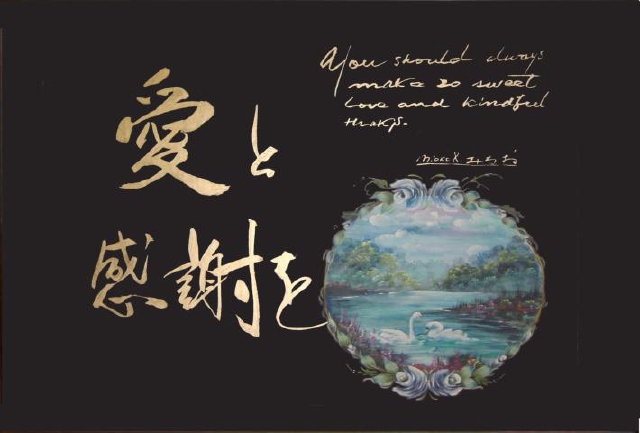 愛と
感謝を
You should always
make so sweet
love and kindful
thanks.